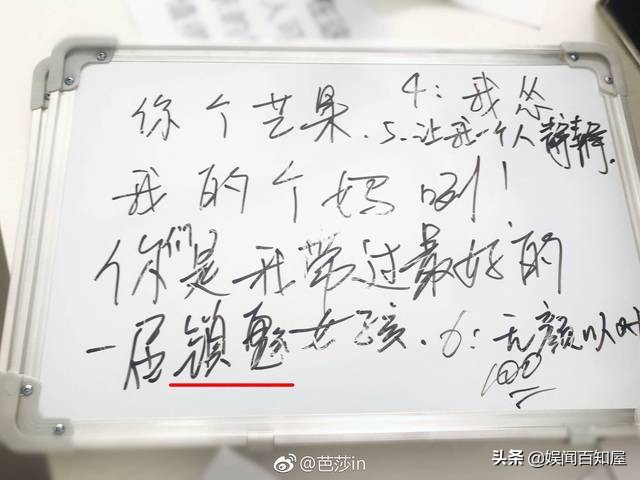 你个芒果.
4:我怂
5、让我一个人静静.
我的个妈呀!
你们是我带过最好的
一届镇魂女孩.
6:无颜以对
100
@芭莎in
头条 @娱闻百知屋